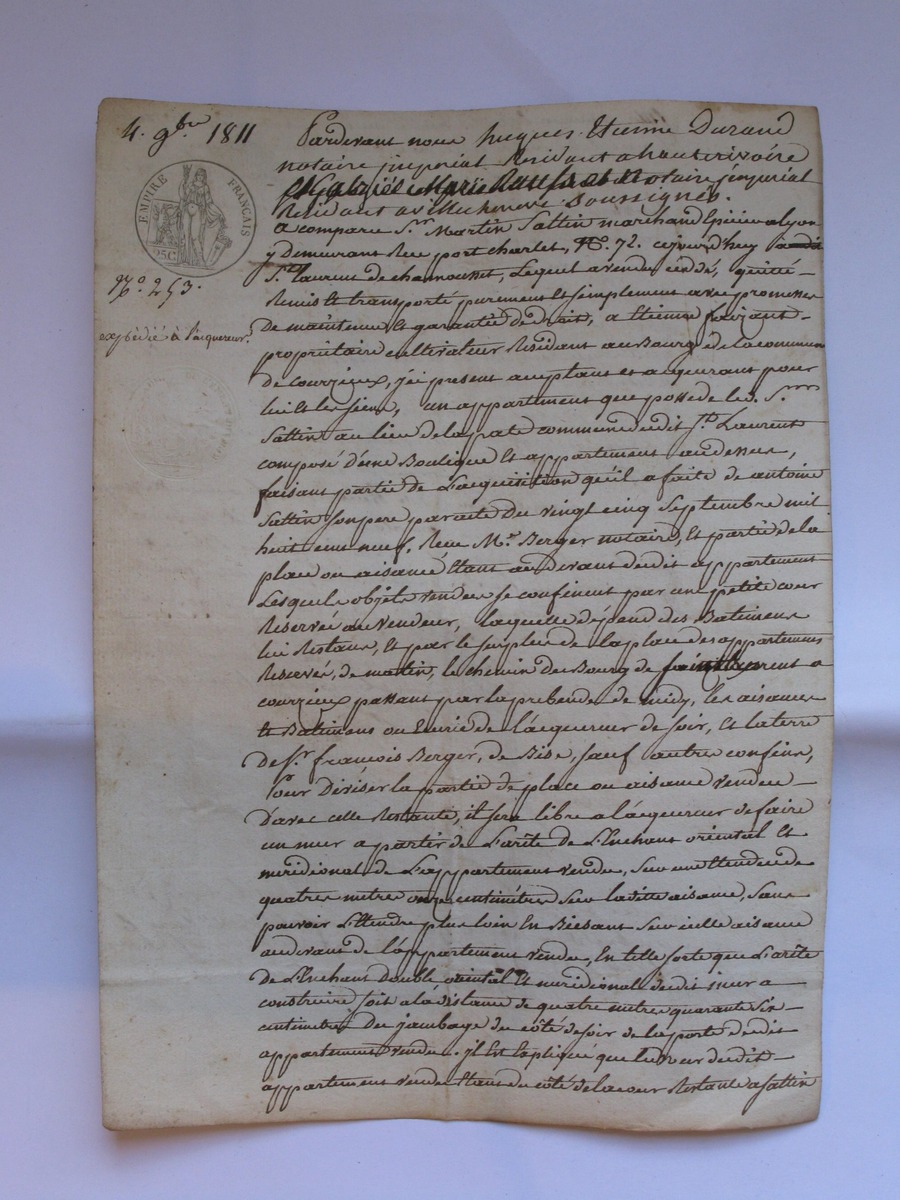 4. 9bre 1811
EMPIRE FRANÇAIS
25C
No. 253.
expédié à l'acquereur.
Pardevant nous hugues Etienne Durand
notaire jmperial Residant a hauterivoire
et Gabriel Marie notaire jmperial
Residant a villecheneve Soussignés.
a comparu Sr. Martin Sattin marchand Epicier a lyon
y demeurant Rue port charlet, No. 72. cejourd'huy a
St. laurent de chamousset, Lequel a vendu, cédé, quitté
Remis Et transporté purement Et simplement avec promesses
De maintenue Et garantie de droit, a Etienne
propriétaire cultivateur Residant au Bourg de la commune
de courzieux, jci present acceptant et acquerant pour
lui Et les siens, un appartement que possede led. Sr.
Sattin au lieu de commune dudit St. Laurent
composé d'une Boutique Et appartement au dessus,
faisant partie de L'acquisition qu'il a faite de antoine
Sattin son pere par acte du vingt cinq Septembre mil
huit cent neuf, Reçu Me. Berger notaire, Et partie de la
place ou aisance Etant au devant dudit appartement
Lesquels objets vendus se confinent par une petite cour
Reservée au vendeur, laquelle dépend des Batimens
lui Restans, Et par le surplus de la place des appartemens
Reservés, de matin, le chemin du Bourg de saint laurent a
courzieux passant par la prebende de midy, les aisances
Et Batimens ou Ecurie de L'acquereur de soir, Et la terre
de Sr. francois Berger, de Bise, sauf autre confins,
Pour Diviser la partie de place ou aisance vendue
D'avec celle Restante, il sera libre a l'acquereur de faire
un mur a partir de L'arête de L'Enchant oriental Et
meridional de L'appartement vendu, sur une Etendue de
quatre metre onze centimètres sur ladite aisance, sans
pouvoir L'Etendre plus loin En Biesant sur icelle aisance
au devant de l'appartement vendu, En telle sorte que L'arête
de L'Enchant double oriental Et meridional dudit mur a
construire soit a la distance de quatre metres quarante six
centimetres du jambage du côté de soir de la porte dudit
appartement vendu. jl Est Expliqué que le mur dudit
appartement vendu Etant du côté de la cour Restante a Sattin